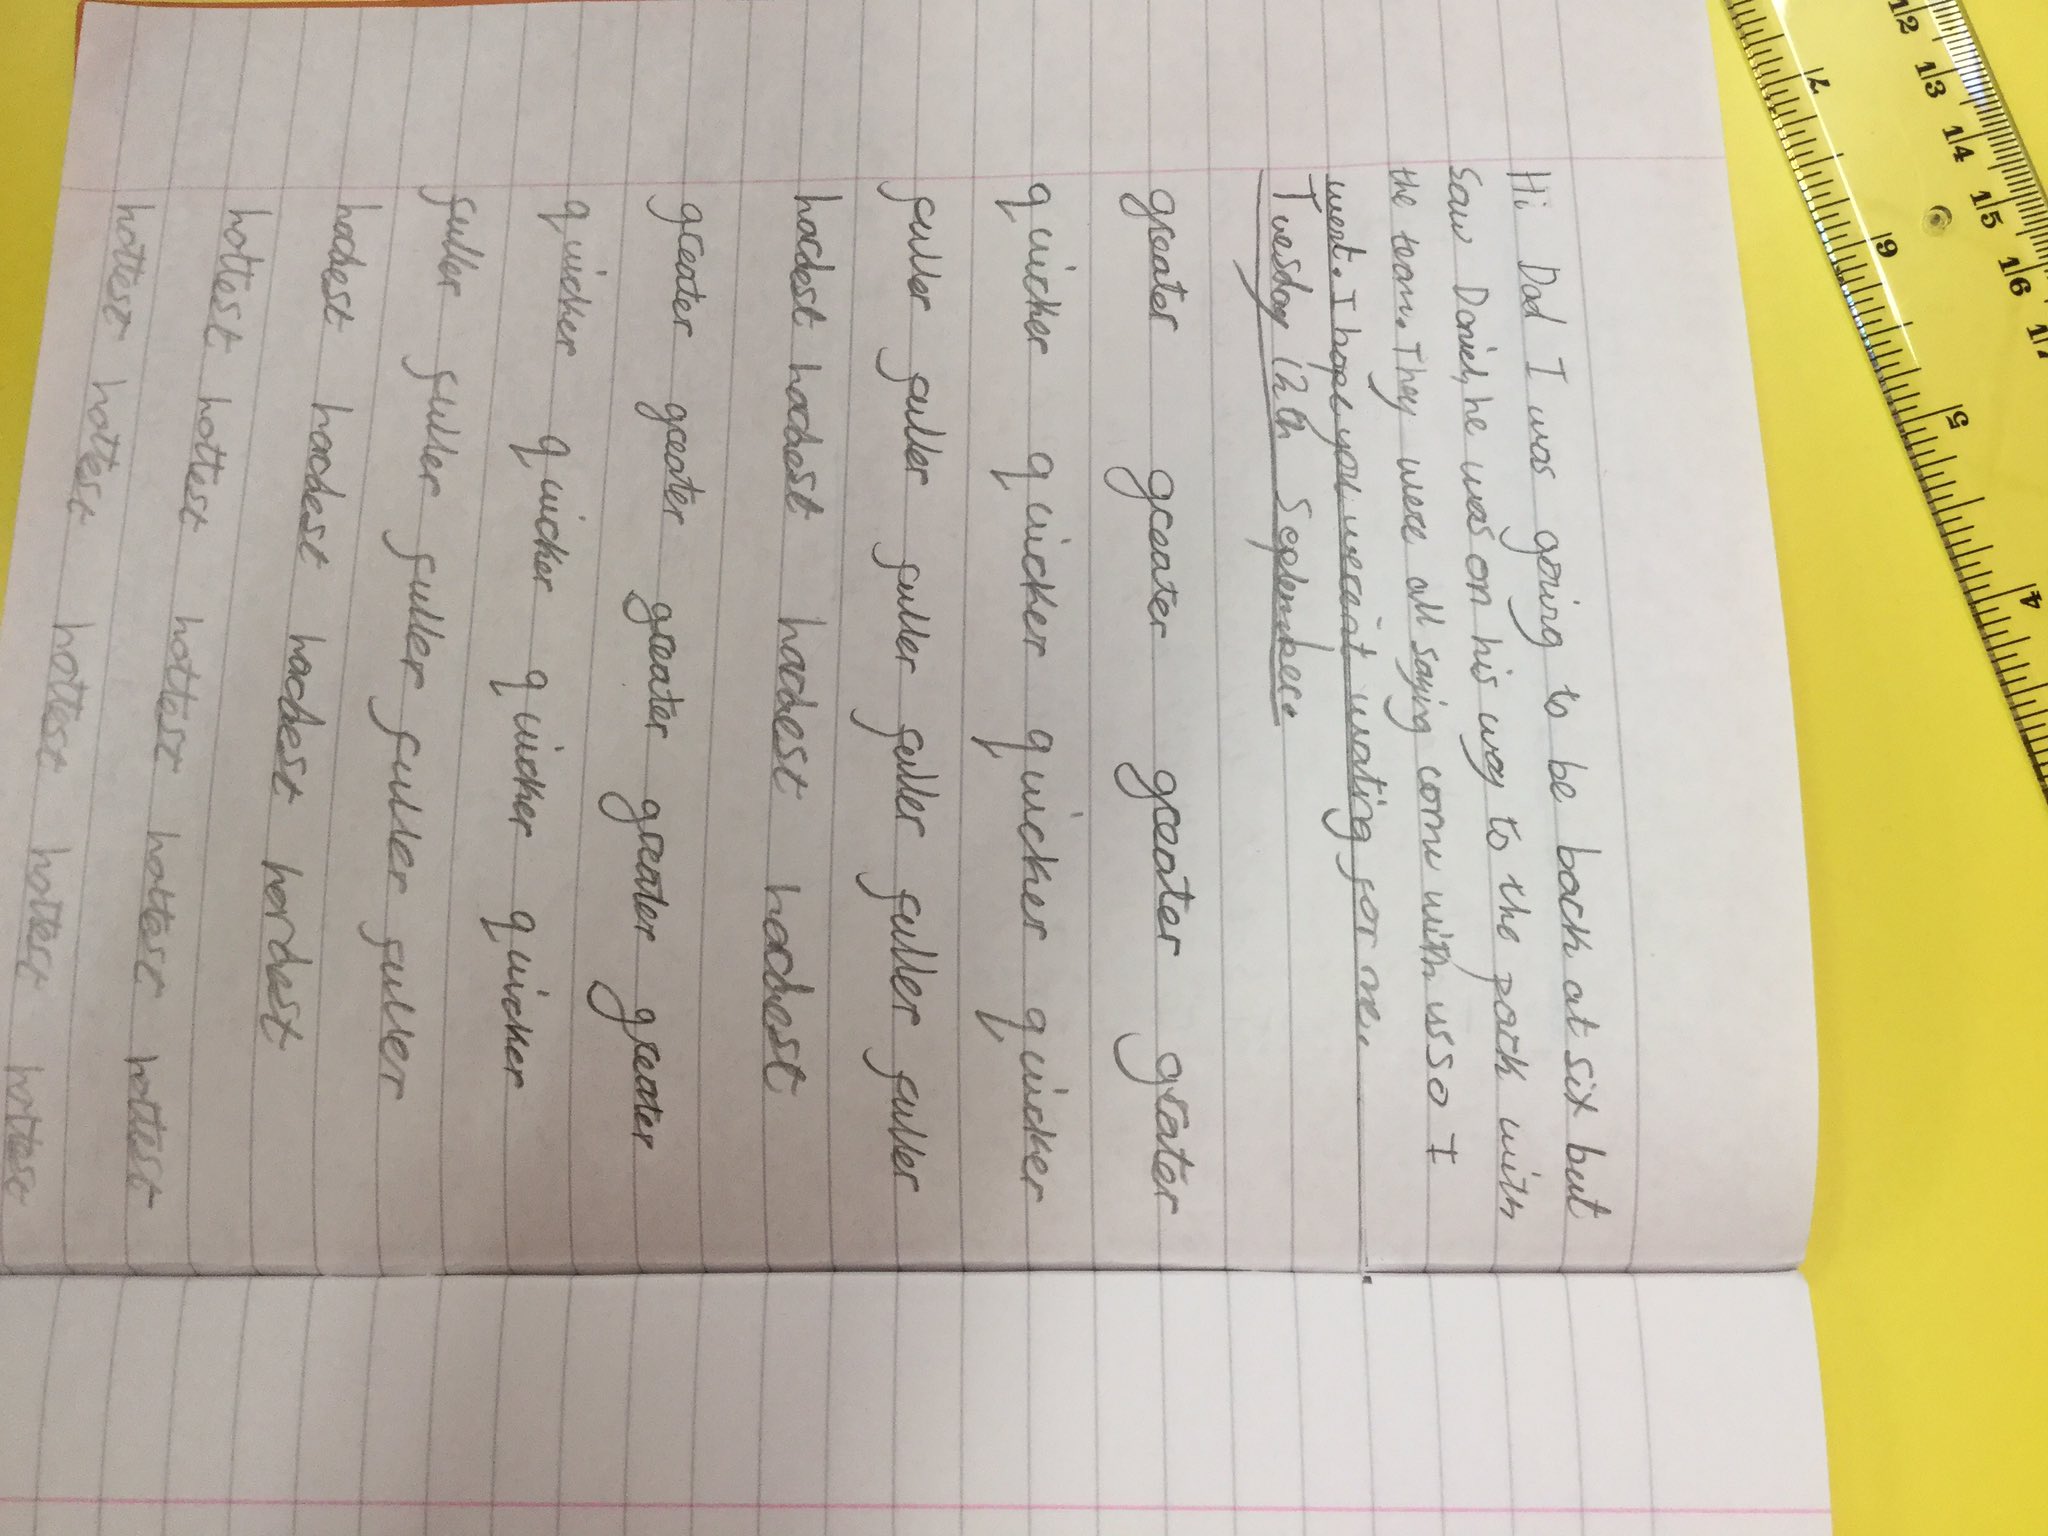 Hi Dad I was going to be back at six but
saw Daniel, he was on his way to the park with
the team. They were all saying come with us so I
went. I hope you werent waiting for me.
Tuesday 12th September
greater greater greater greater
quicker quicker quicker quicker
fuller fuller fuller fuller fuller fuller
hardest hardest hardest hardest
greater greater greater greater greater
quicker quicker quicker quicker
fuller fuller fuller fuller fuller
hardest hardest hardest hardest
hottest hottest hottest hottest hottest
hottest hottest hottest hottest hottest
12 13 14 15 16 17
7 6 5 4